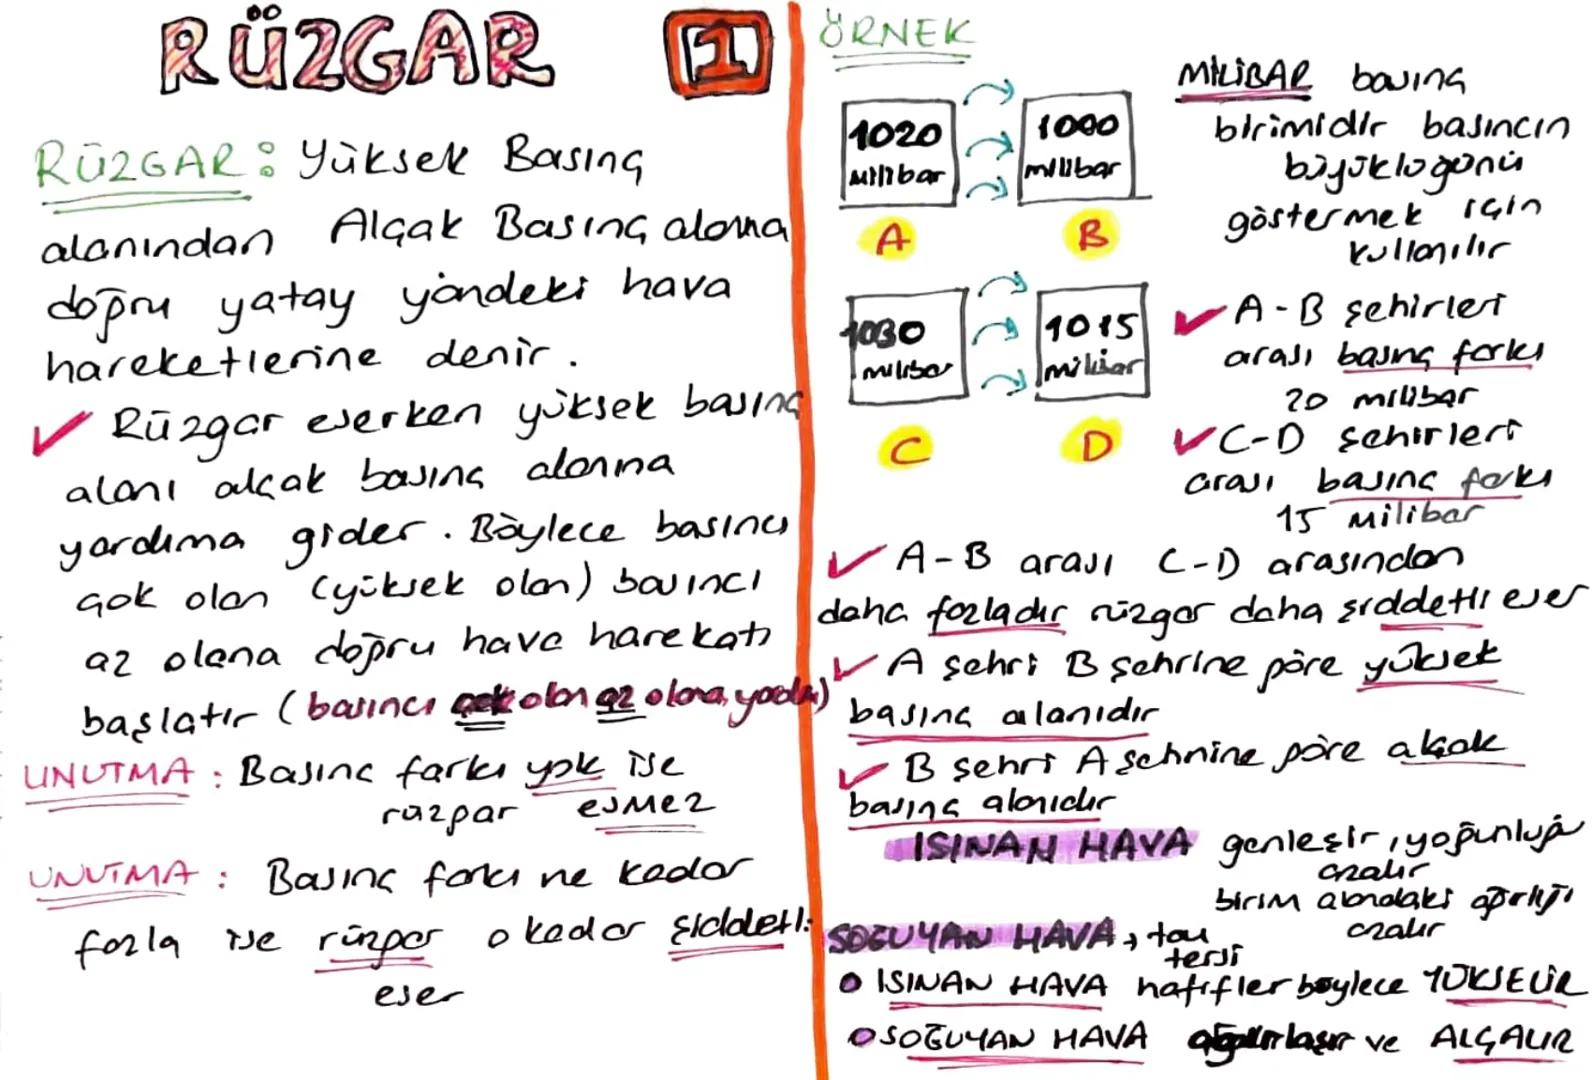 RÜZGAR 1
RÜZGAR: Yüksek Basınç
alanından Alçak Basınç alanına
doğru yatay yöndeki hava
hareketlerine denir.
✓ Rüzgar eserken yüksek basınç
alanı alçak basınç alanına
yardıma gider. Böylece basıncı
çok olan (yüksek olan) basıncı
az olana doğru hava harekatı
başlatır (basıncı çok olan az olana yardım)
UNUTMA: Basınç farkı yok ise
rüzgar esmez
UNUTMA: Basınç farkı ne kadar
fazla ise rüzgar o kadar şiddetli
eser
ÖRNEK
1020
milibar
A
1000
milibar
B
1030
milibar
C
1015
milibar
D
MİLİBAR basınç
birimidir basıncın
büyüklüğünü
göstermek için
kullanılır
✓ A-B şehirleri
arası basınç farkı
20 milibar
✓ C-D şehirleri
arası basınç farkı
15 milibar
✓ A-B arası C-D arasından
daha fazladır rüzgar daha şiddetli eser
✓ A şehri B şehrine göre yüksek
basınç alanıdır
✓ B şehri A şehrine göre alçak
basınç alanıdır
ISINAN HAVA genleşir, yoğunluğu
azalır
birim alandaki ağırlığı
azalır
SOĞUYAN HAVA, tam
tersi
• ISINAN HAVA hafifler böylece YÜKSELİR
• SOĞUYAN HAVA ağırlaşır ve ALÇALIR